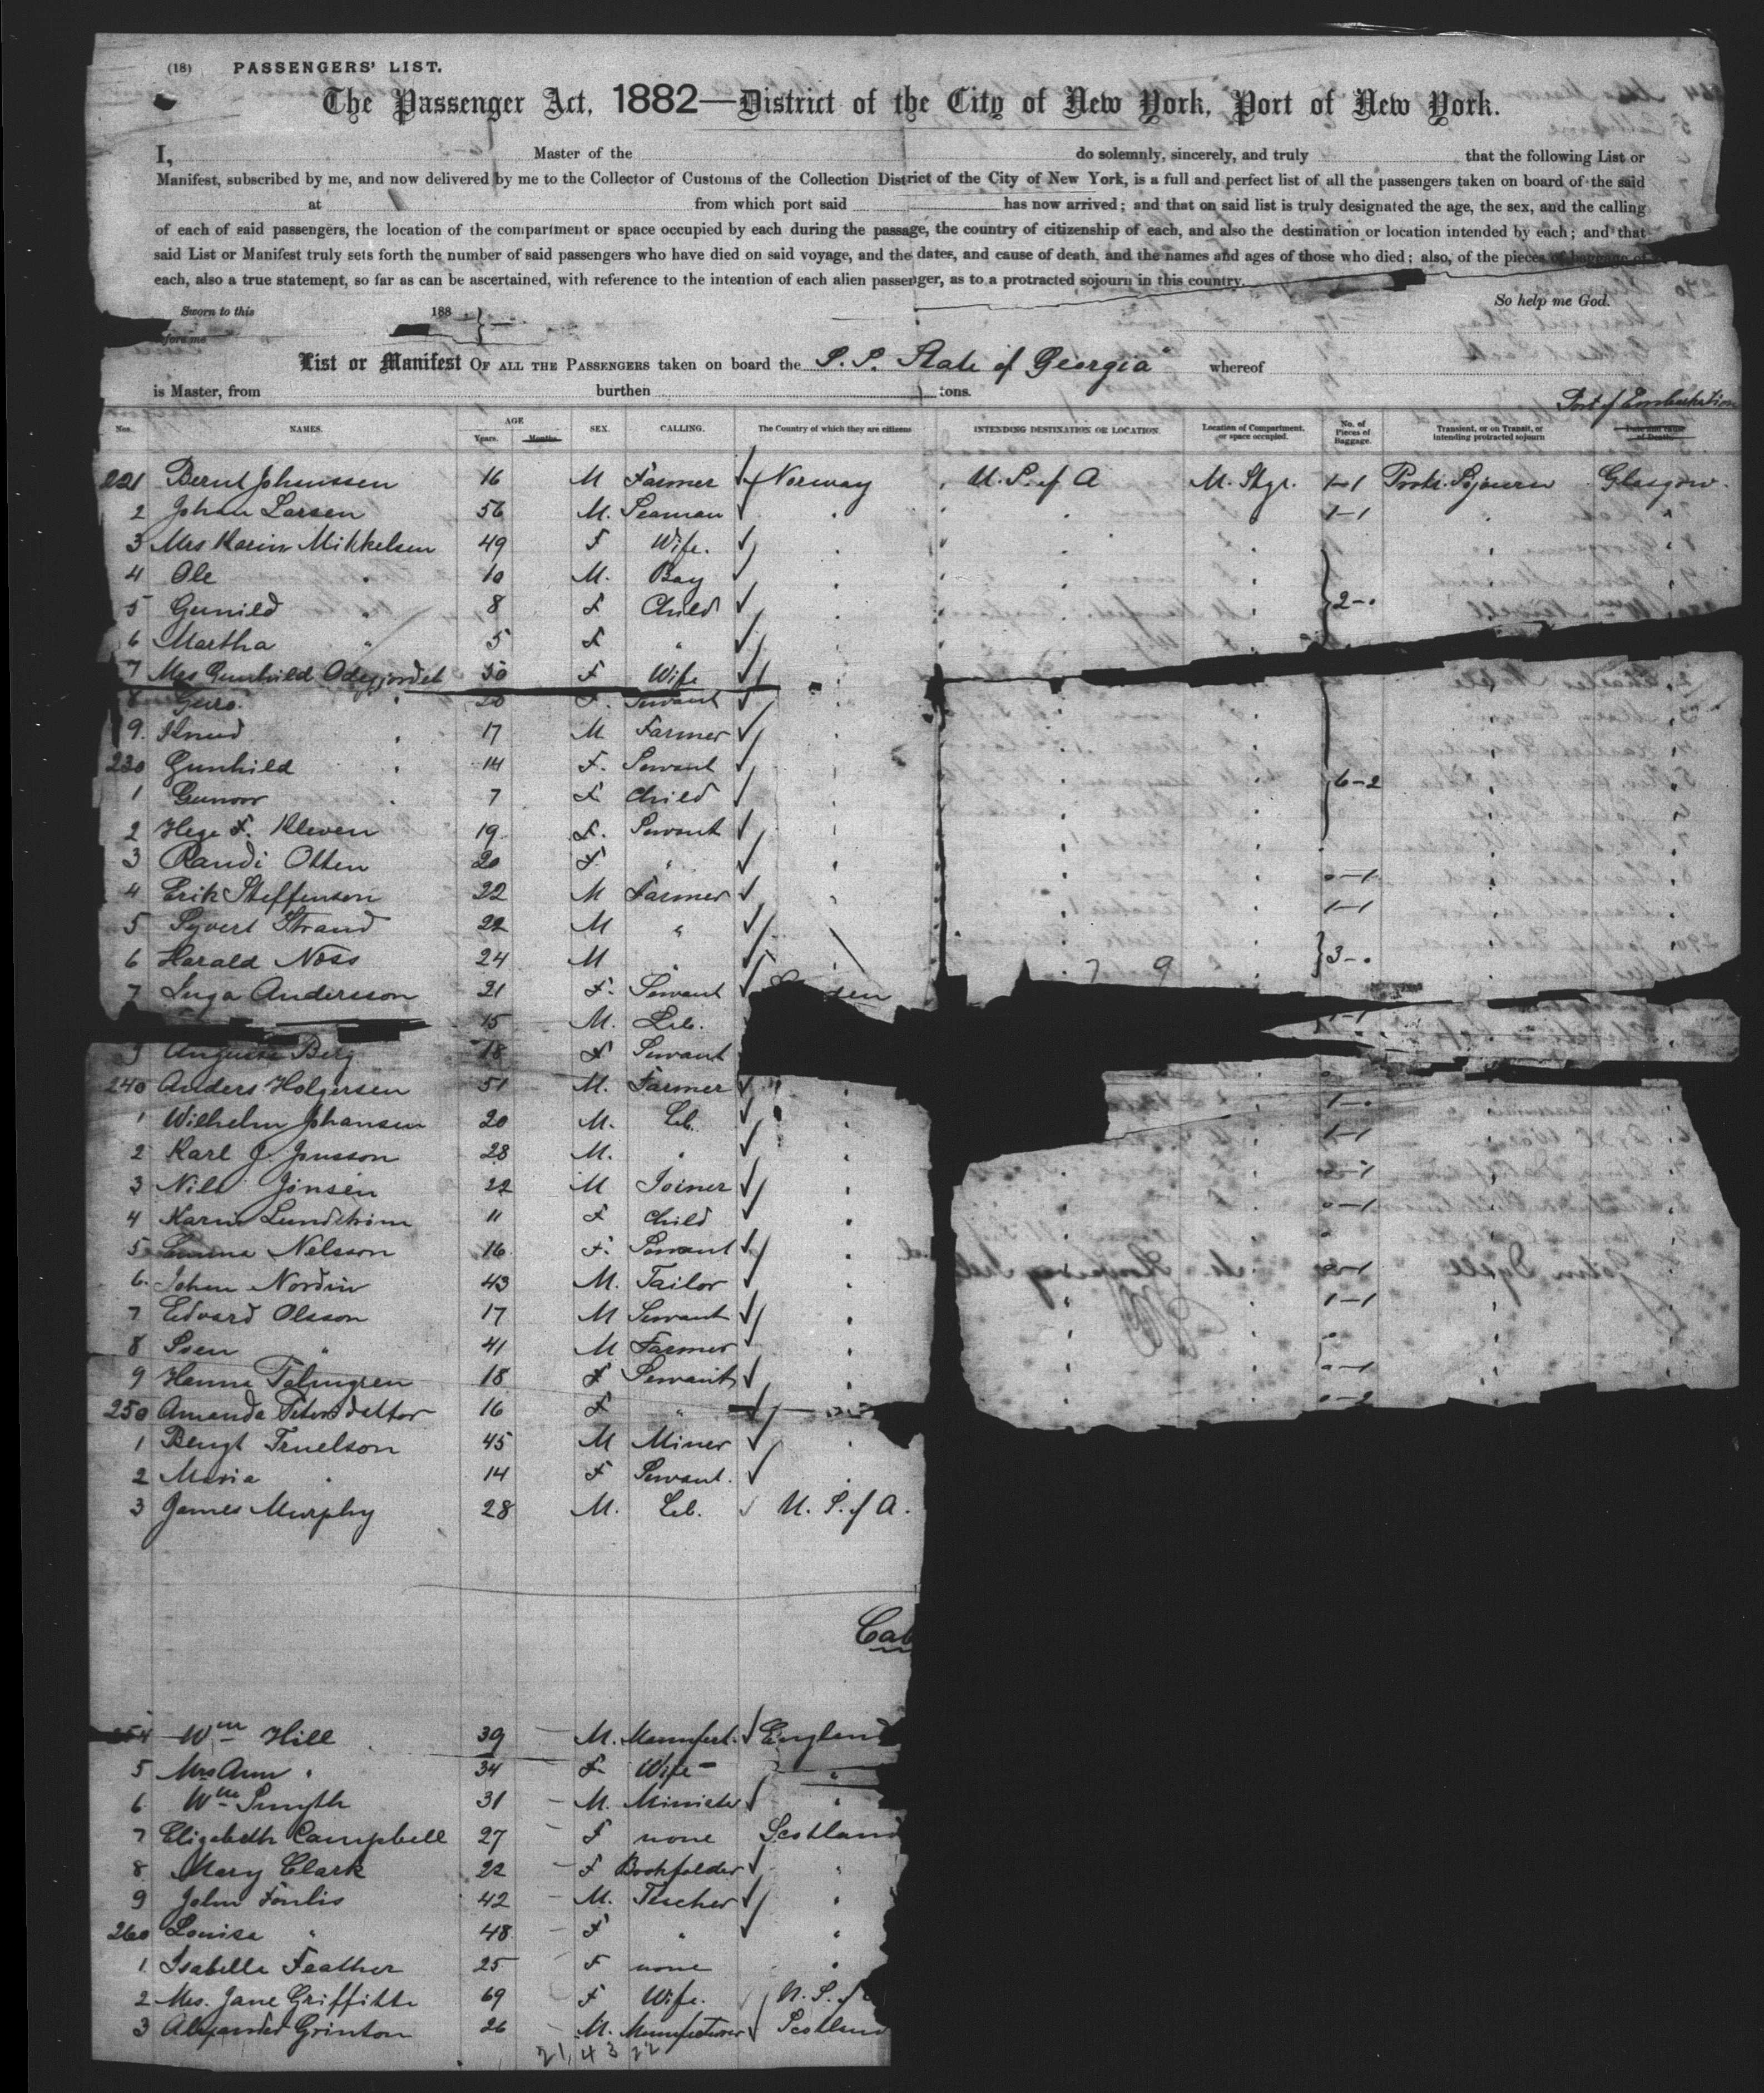 (18) PASSENGERS' LIST.
The Passenger Act, 1882—District of the City of New York, Port of New York.
I, Master of the do solemnly, sincerely, and truly that the following List or
Manifest, subscribed by me, and now delivered by me to the Collector of Customs of the Collection District of the City of New York, is a full and perfect list of all the passengers taken on board of the said
at from which port said has now arrived; and that on said list is truly designated the age, the sex, and the calling
of each of said passengers, the location of the compartment or space occupied by each during the passage, the country of citizenship of each, and also the destination or location intended by each; and that
said List or Manifest truly sets forth the number of said passengers who have died on said voyage, and the dates, and cause of death, and the names and ages of those who died; also, of the pieces of baggage of
each, also a true statement, so far as can be ascertained, with reference to the intention of each alien passenger, as to a protracted sojourn in this country.
So help me God.
Sworn to this 188
before me
List or Manifest OF ALL THE PASSENGERS taken on board the S.S. State of Georgia whereof
is Master, from burthen tons.
Port of Embarkation
Nos. NAMES. AGE Years. Months. SEX. CALLING. The Country of which they are citizens INTENDING DESTINATION OR LOCATION. Location of Compartment, or space occupied. No. of Pieces of Baggage. Transient, or on Transit, or intending protracted sojourn Date and cause of Death.
221 Bernt Johnssen 16 M Farmer Norway U.S. of A M. Stgr. 1-1 Protr. Sojourn Glasgow.
2 Johan Larsen 56 M. Seaman " 1-1
3 Mrs Karin Mikkelsen 49 F Wife.
4 Ole " 10 M. Boy
5 Gunild " 8 F Child 2-"
6 Martha " 5 F "
7 Mrs Gunhild Odegjordet 50 F Wife
8 Guro " 20 F. Servant
9. Knud " 17 M Farmer
230 Gunhild " 14 F. Servant
1 Gunvor " 7 F Child 6-2
2 Hege F. Kleven 19 F. Servant
3 Randi Olsen 20 F "
4 Erik Steffenson 22 M Farmer 0-1
5 Syvert Strand 22 M " 1-1
6 Harald Noss 24 M " 3-"
7 Inga Andersson 21 F. Servant
15 M. Lab. 1-1
9 Augusta Berg 18 F Servant
240 Anders Holgersen 51 M. Farmer
1 Wilhelm Johansen 20 M. Lb. 1-0
2 Karl J. Jonsson 28 M. " 1-1
3 Nils Jönsen 22 M Joiner 0-1
4 Karin Lundström 11 F Child 0-1
5 Emma Nelsson 16 F. Servant
6. Johan Nordin 43 M. Tailor 0-1
7 Edvard Olsson 17 M Servant 1-1
8 Sven " 41 M Farmer
9 Hanna Palmgren 18 F Servant 0-1
250 Amanda Petersdotter 16 F " 0-2
1 Bengt Truelson 45 M Miner
2 Maria " 14 F Servant.
3 James Murphy 28 M. Lb. U.S. of A.
Cab
254 Wm Hill 39 — M. Manufact. England
5 Mrs Ann " 34 F. Wife "
6 Wm Smyth 31 — M. Minister "
7 Elizabeth Campbell 27 — F none Scotland
8 Mary Clark 22 — F Bookfolder "
9 John Foulis 42 — M. Teacher "
260 Louisa " 48 — F " "
1 Isabella Feather 25 — F none "
2 Mrs. Jane Griffiths 69 — F Wife. U.S. of
3 Alexander Grinton 26 — M. Manufacturer Scotland
21, 43 22